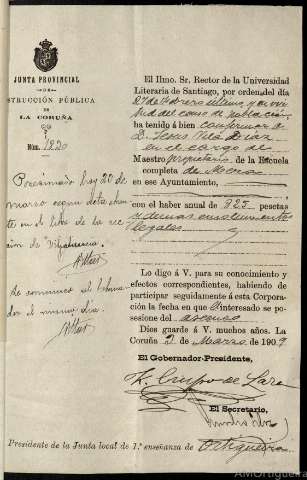 JUNTA PROVINCIAL
DE
STRUCCIÓN PÚBLICA
DE
LA CORUÑA
Núm. 1230
Posesionado hoy 20 de
marzo segun
en el libro de la
Se comunicó al
el mismo dia.
El Ilmo. Sr. Rector de la Universidad
Literaria de Santiago, por orden del día
27 de Febrero último, y en
del censo de población,
ha tenido á bien confirmar á
D. Jesús Vilá Díaz
en el cargo de
Maestro propietario de la Escuela
completa de Mera
en ese Ayuntamiento,
con el haber anual de 825 pesetas
y demas emolumentos
legales
Lo digo á V. para su conocimiento y
efectos correspondientes, habiendo de
participar seguidamente á esta Corporación
la fecha en que el interesado se
posesione del ascenso
Dios guarde á V. muchos años. La
Coruña 2 de Marzo de 1909
El Gobernador-Presidente,
Crespo de Lara
El Secretario,
Presidente de la Junta local de 1.ª enseñanza de Ortigueira
AMOrtigueira